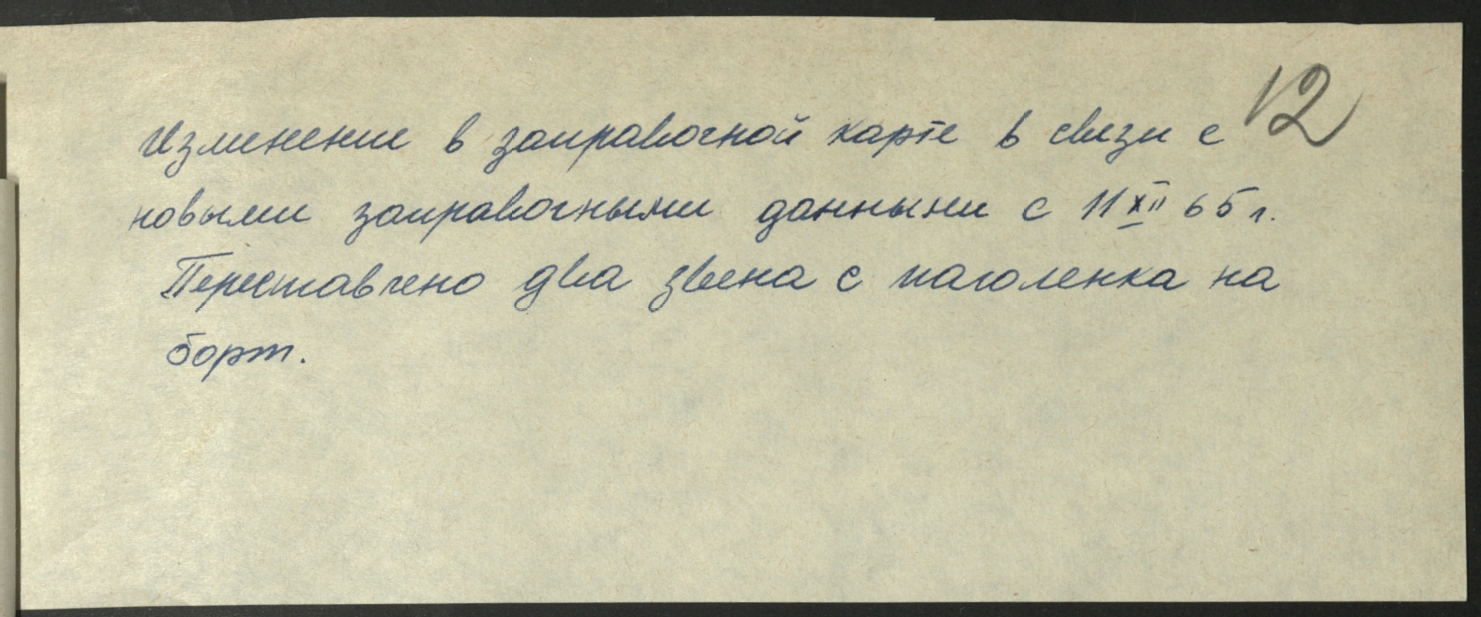 12
Изменение в заправочной карте в связи с
новыми заправочными данными с 11 XII 65 г.
Переставлено два звена с паголенка на
борт.